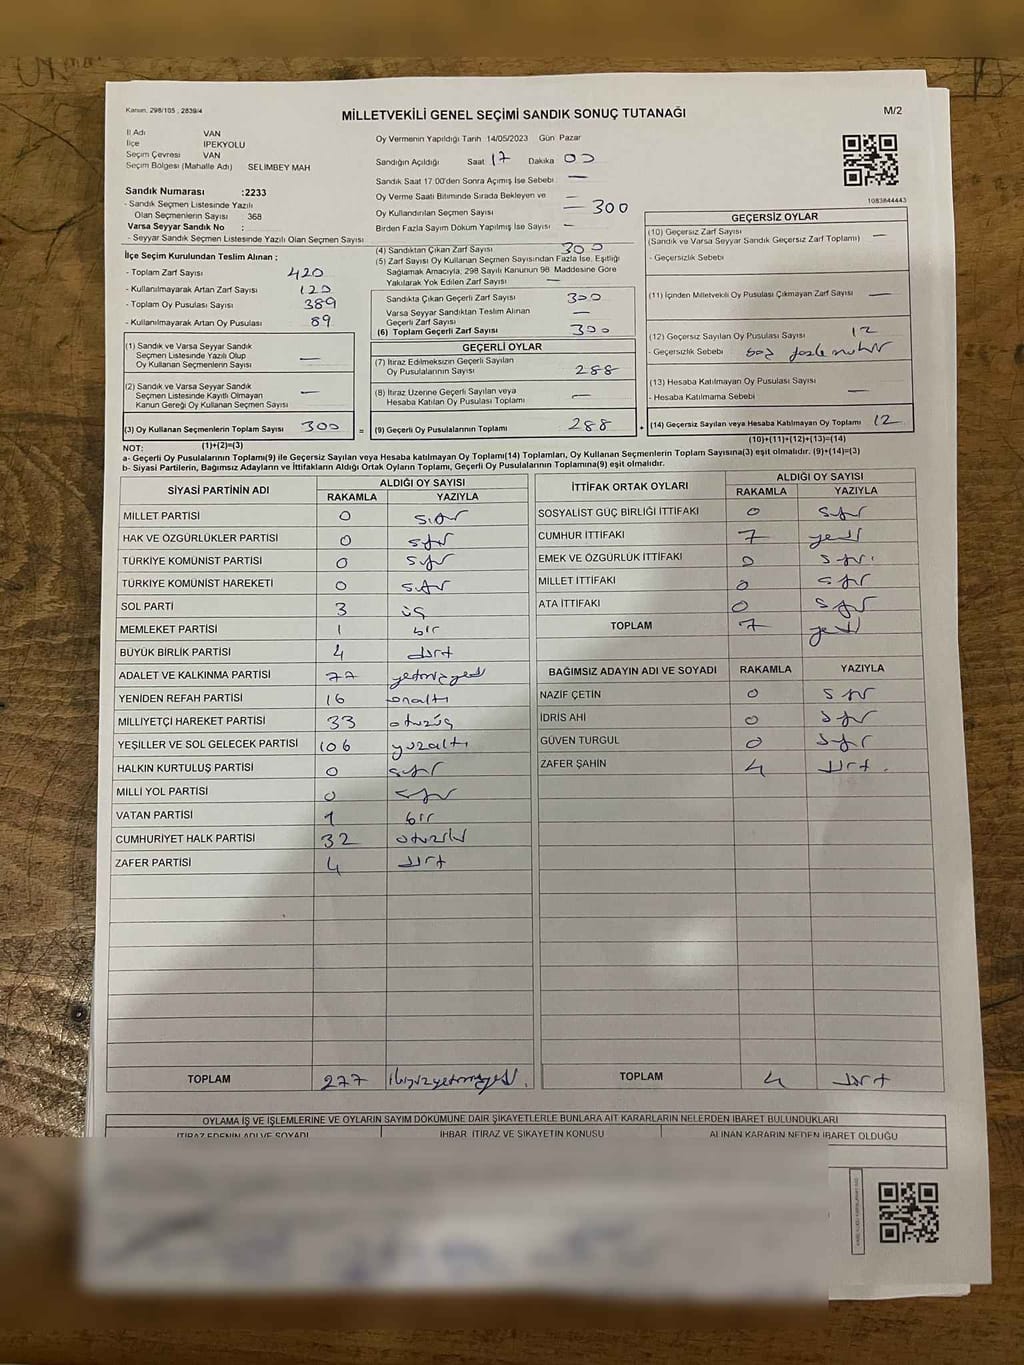 Kanun, 298/105 , 2839/4
MİLLETVEKİLİ GENEL SEÇİMİ SANDIK SONUÇ TUTANAĞI
M/2
İl Adı VAN
İlçe İPEKYOLU
Seçim Çevresi VAN
Seçim Bölgesi (Mahalle Adı) SELIMBEY MAH
Sandık Numarası :2233
- Sandık Seçmen Listesinde Yazılı
Olan Seçmenlerin Sayısı 368
Varsa Seyyar Sandık No :
- Seyyar Sandık Seçmen Listesinde Yazılı Olan Seçmen Sayısı
İlçe Seçim Kurulundan Teslim Alınan ;
- Toplam Zarf Sayısı 420
- Kullanılmayarak Artan Zarf Sayısı 120
- Toplam Oy Pusulası Sayısı 389
- Kullanılmayarak Artan Oy Pusulası 89
(1) Sandık ve Varsa Seyyar Sandık
Seçmen Listesinde Yazılı Olup
Oy Kullanan Seçmenlerin Sayısı —
(2) Sandık ve Varsa Seyyar Sandık
Seçmen Listesinde Kayıtlı Olmayan
Kanun Gereği Oy Kullanan Seçmen Sayısı —
(3) Oy Kullanan Seçmenlerin Toplam Sayısı 300
(1)+(2)=(3)
Oy Vermenin Yapıldığı Tarih 14/05/2023 Gün Pazar
Sandığın Açıldığı Saat 17 Dakika 00
Sandık Saat 17.00'den Sonra Açılmış İse Sebebi —
Oy Verme Saati Bitiminde Sırada Bekleyen ve —
Oy Kullandırılan Seçmen Sayısı — 300
Birden Fazla Sayım Döküm Yapılmış İse Sayısı —
(4) Sandıktan Çıkan Zarf Sayısı 300
(5) Zarf Sayısı Oy Kullanan Seçmen Sayısından Fazla İse, Eşitliği
Sağlamak Amacıyla, 298 Sayılı Kanunun 98. Maddesine Göre
Yakılarak Yok Edilen Zarf Sayısı —
Sandıkta Çıkan Geçerli Zarf Sayısı 300
Varsa Seyyar Sandıktan Teslim Alınan
Geçerli Zarf Sayısı —
(6) Toplam Geçerli Zarf Sayısı 300
GEÇERLİ OYLAR
(7) İtiraz Edilmeksizin Geçerli Sayılan
Oy Pusulalarının Sayısı 288
(8) İtiraz Üzerine Geçerli Sayılan veya
Hesaba Katılan Oy Pusulası Toplamı —
= (9) Geçerli Oy Pusulalarının Toplamı 288
1083844443
GEÇERSİZ OYLAR
(10) Geçersiz Zarf Sayısı —
(Sandık ve Varsa Seyyar Sandık Geçersiz Zarf Toplamı)
- Geçersizlik Sebebi
(11) İçinden Milletvekili Oy Pusulası Çıkmayan Zarf Sayısı —
(12) Geçersiz Sayılan Oy Pusulası Sayısı 12
- Geçersizlik Sebebi
(13) Hesaba Katılmayan Oy Pusulası Sayısı —
- Hesaba Katılmama Sebebi
+ (14) Geçersiz Sayılan veya Hesaba Katılmayan Oy Toplamı 12
(10)+(11)+(12)+(13)=(14)
NOT:
a- Geçerli Oy Pusulalarının Toplamı(9) ile Geçersiz Sayılan veya Hesaba katılmayan Oy Toplamı(14) Toplamları, Oy Kullanan Seçmenlerin Toplam Sayısına(3) eşit olmalıdır. (9)+(14)=(3)
b- Siyasi Partilerin, Bağımsız Adayların ve İttifakların Aldığı Ortak Oyların Toplamı, Geçerli Oy Pusulalarının Toplamına(9) eşit olmalıdır.
SİYASİ PARTİNİN ADI ALDIĞI OY SAYISI
RAKAMLA YAZIYLA
MİLLET PARTİSİ 0 sıfır
HAK VE ÖZGÜRLÜKLER PARTİSİ 0 sıfır
TÜRKİYE KOMÜNİST PARTİSİ 0 sıfır
TÜRKİYE KOMÜNİST HAREKETİ 0 sıfır
SOL PARTİ 3 üç
MEMLEKET PARTİSİ 1 bir
BÜYÜK BİRLİK PARTİSİ 4 dört
ADALET VE KALKINMA PARTİSİ 77 yetmişyedi
YENİDEN REFAH PARTİSİ 16 onaltı
MİLLİYETÇİ HAREKET PARTİSİ 33 otuzüç
YEŞİLLER VE SOL GELECEK PARTİSİ 106 yüzaltı
HALKIN KURTULUŞ PARTİSİ 0 sıfır
MİLLİ YOL PARTİSİ 0 sıfır
VATAN PARTİSİ 1 bir
CUMHURİYET HALK PARTİSİ 32 otuziki
ZAFER PARTİSİ 4 dört
TOPLAM 277 ikiyüzyetmişyedi.
İTTİFAK ORTAK OYLARI ALDIĞI OY SAYISI
RAKAMLA YAZIYLA
SOSYALİST GÜÇ BİRLİĞİ İTTİFAKI 0 sıfır
CUMHUR İTTİFAKI 7 yedi
EMEK VE ÖZGÜRLÜK İTTİFAKI 0 sıfır.
MİLLET İTTİFAKI 0 sıfır
ATA İTTİFAKI 0 sıfır
TOPLAM 7 yedi
BAĞIMSIZ ADAYIN ADI VE SOYADI RAKAMLA YAZIYLA
NAZİF ÇETİN 0 sıfır
İDRİS AHİ 0 sıfır
GÜVEN TURGUL 0 sıfır
ZAFER ŞAHİN 4 dört.
TOPLAM 4 dört
OYLAMA İŞ VE İŞLEMLERİNE VE OYLARIN SAYIM DÖKÜMÜNE DAİR ŞİKAYETLERLE BUNLARA AİT KARARLARIN NELERDEN İBARET BULUNDUKLARI
İTİRAZ EDENİN ADI VE SOYADI İHBAR, İTİRAZ VE ŞİKAYETİN KONUSU ALINAN KARARIN NEDEN İBARET OLDUĞU